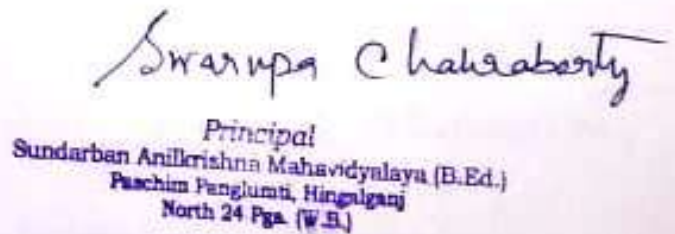 Swarupa Chakraborty
Principal
Sundarban Anilkrishna Mahavidyalaya (B.Ed.)
Paschim Panglumti, Hingalganj
North 24 Pgs. (W.B.)